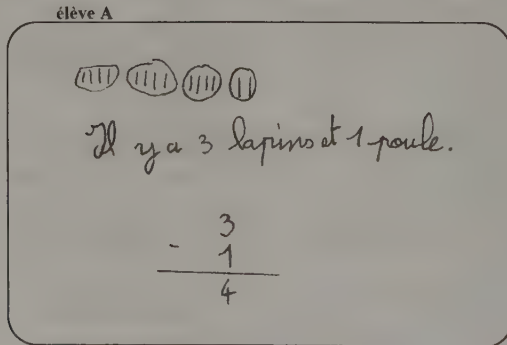 élève A
Il y a 3 lapins et 1 poule.
3
- 1
4